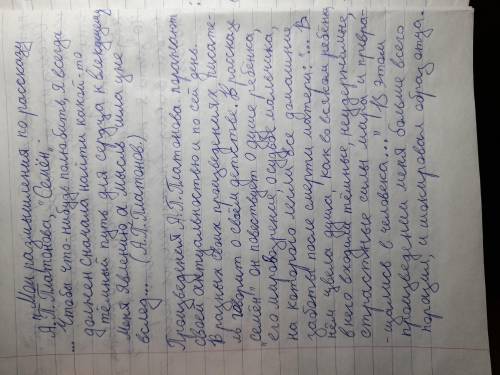 "Мои размышления по рассказу
А.П.Платонова, "Семён"
"Чтобы что-нибудь полюбить, я всегда
должен сначала найти какой-то
тёмный путь для сердца к влекущему
меня явлению, а мысль шла уже
вслед... (А.П.Платонов)
Произведения А.П.Платонова поражают
своей актуальностью и по сей день.
В разных своих произведениях писате-
ль говорит о своём детстве. В рассказе
"Семён" он повествует о душе ребёнка,
его мировоззрении, о судьбе мальчика,
на которого легли все домашние
заботы после смерти матери: "... В
нём цвела душа, как во всяком ребёнке,
в него входили тёмные, неудержимые,
страстные силы мира и превра-
-щались в человека..." В этом
произведении меня больше всего
поразил, и шокировал образ отца.